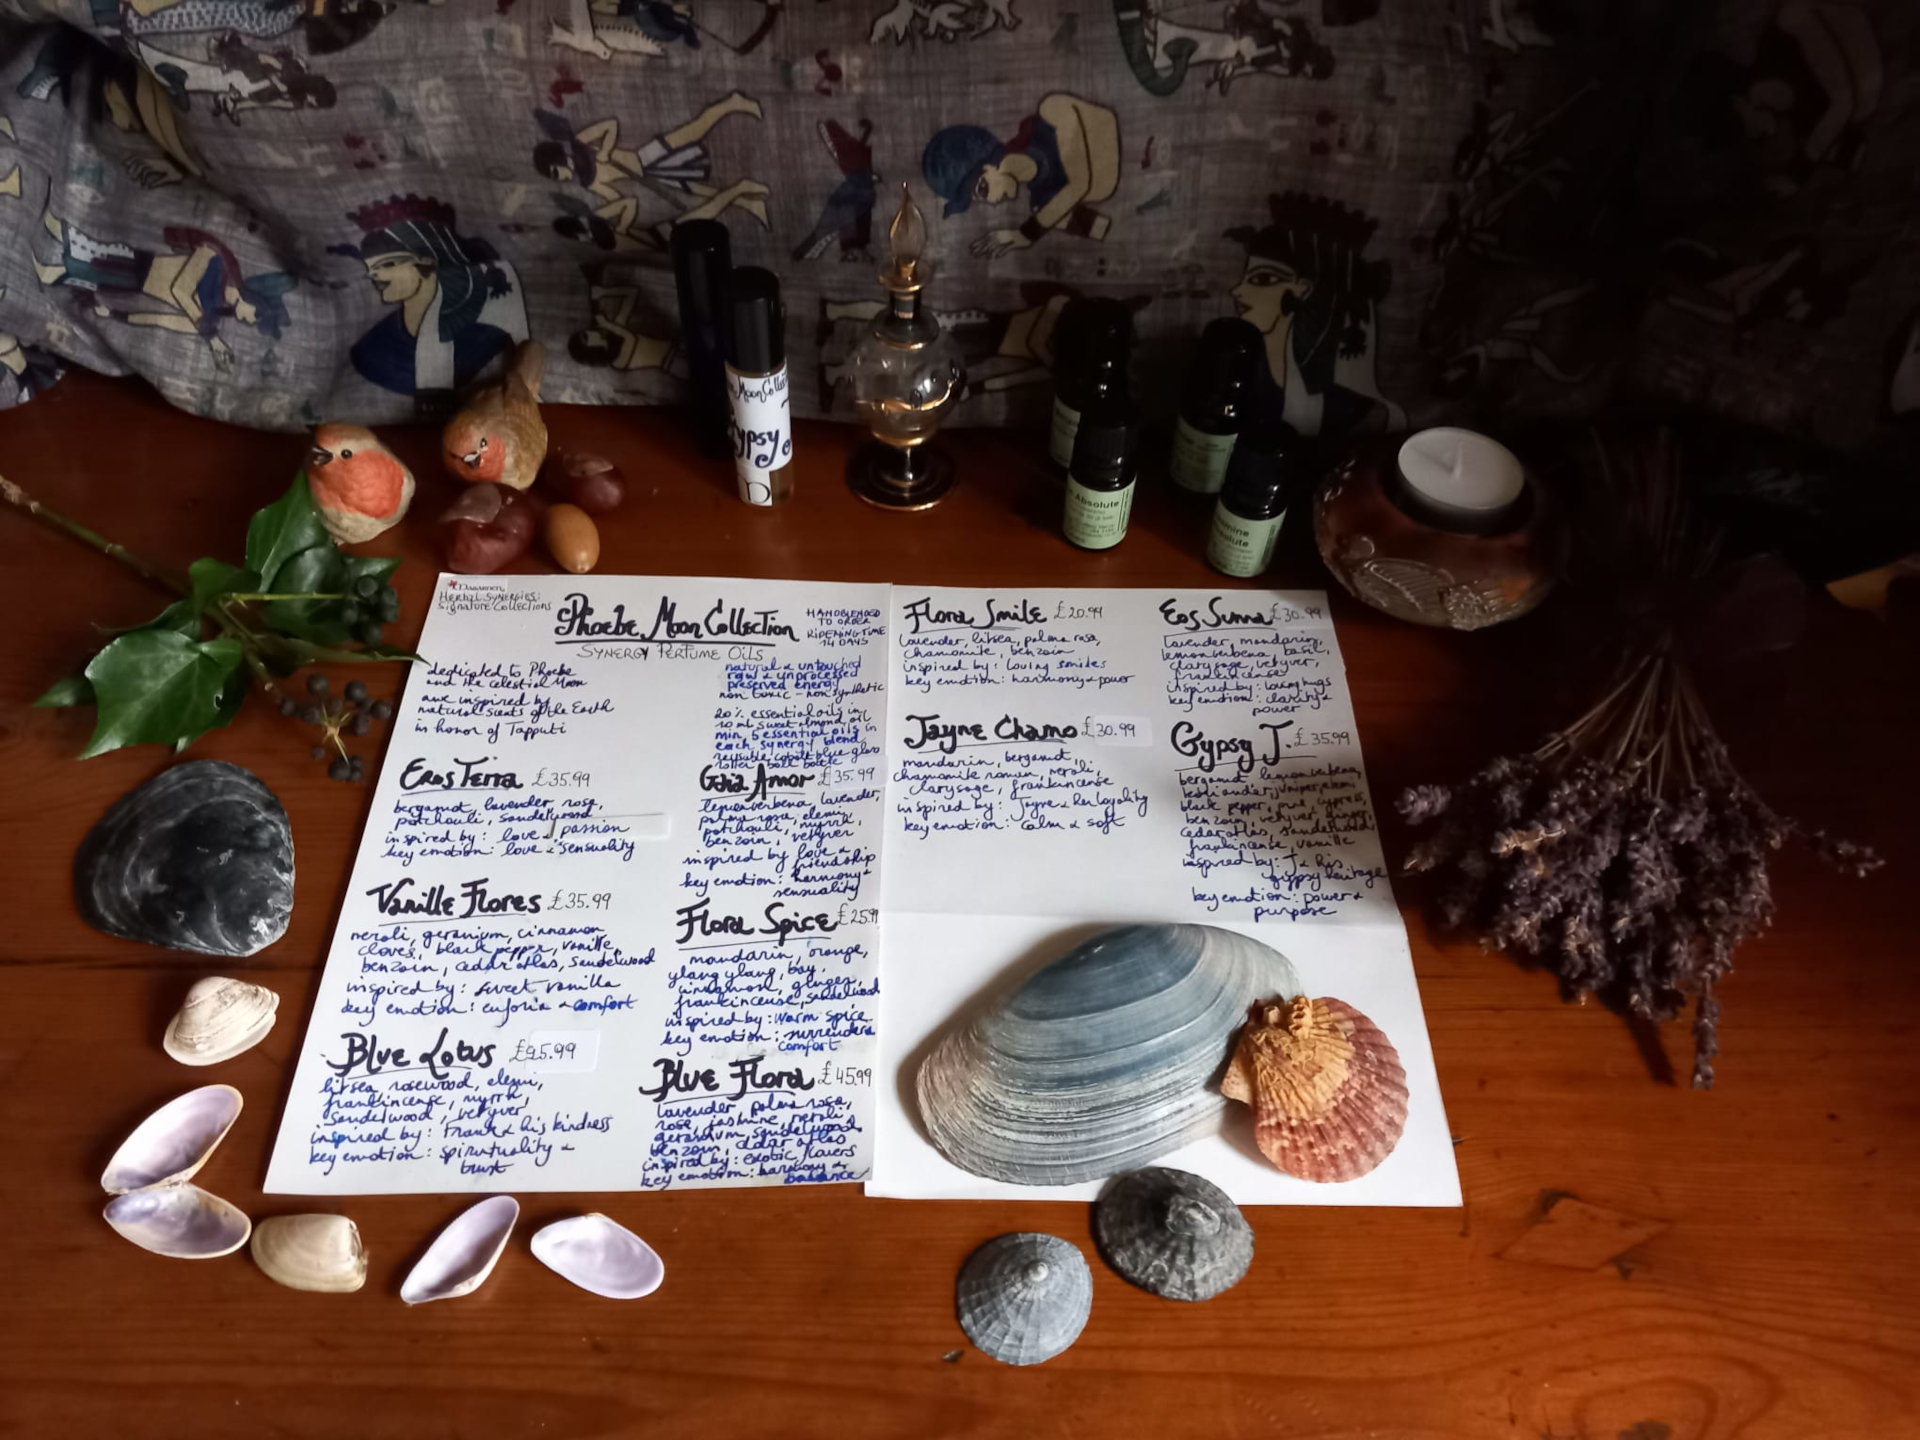 Herbal Synergies:
Signature Collections
Phoebe Moon Collection
Synergy Perfume Oils
HANDBLENDED
TO ORDER
RIPENING TIME
14 DAYS
dedicated to Phoebe
and the celestial Moon
are inspired by
natural scents of the Earth
in honor of Tapputi
natural & untouched
raw & unprocessed
preserved energy
non toxic - non synthetic
20% essential oils in
10 ml sweet almond oil
min. 5 essential oils in
each synergy blend
reusable cobalt blue glass
roller ball bottle
Eros Terra £35.99
bergamot, lavender, rose,
patchouli, sandelwood
inspired by: love & passion
key emotion: love & sensuality
Vanille Flores £35.99
neroli, geranium, cinnamon
cloves, black pepper, vanille,
benzoin, cedar atlas, sandelwood
inspired by: sweet vanilla
key emotion: euforia & comfort
Blue Lotus
litsea, rosewood, elemi,
frankincense, myrrh,
sandelwood, vetyver
inspired by: Frank & his kindness
key emotion: spirituality &
trust
Gaia Amor £35.99
lemonverbena, lavender,
palma rosa, elemi,
patchouli, myrrh,
benzoin, vetyver
inspired by love &
friendship
key emotion: harmony &
sensuality
Flora Spice £25.99
mandarin, orange,
ylang ylang, bay,
cinnamon, ginger,
frankincense, sandelwood
inspired by: warm spice
key emotion: surrender &
comfort
Blue Flora £45.99
lavender, palma rosa,
rose, jasmine, neroli,
geranium, sandelwood,
benzoin, cedar atlas
inspired by: exotic flowers
key emotion: harmony &
balance
Flora Smile £20.99
lavender, litsea, palma rosa,
chamomile, benzoin
inspired by: loving smiles
key emotion: harmony & power
Jayne Chamo £30.99
mandarin, bergamot,
chamomile roman, neroli,
clarysage, frankincense
inspired by: Jayne & her loyality
key emotion: calm & soft
Eos Suma £30.99
lavender, mandarin,
lemonverbena, basil,
clarysage, vetyver,
frankincense
inspired by: loving hugs
key emotion: clarity &
power
Gypsy J. £35.99
bergamot, lemonverbena,
black pepper, pine, cypress,
benzoin, vetyver, ginger,
cedar atlas, sandelwood,
frankincense, vanille
inspired by: J & his
gypsy heritage
key emotion: power &
purpose
Moon Collection
Gypsy
Absolute
Absolute